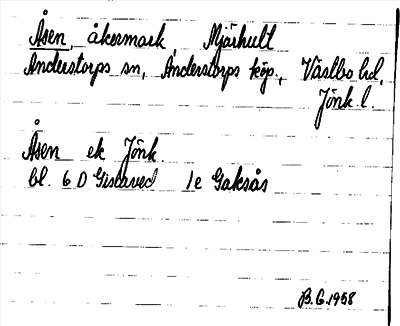 Åsen, åkermark, Mjärhult
Anderstorps sn, Anderstorps köp., Västbo hd,
Jönk. l.
Åsen ek Jönk.
bl. 6 D Gislaved 1e Gaksås
B.G. 1958